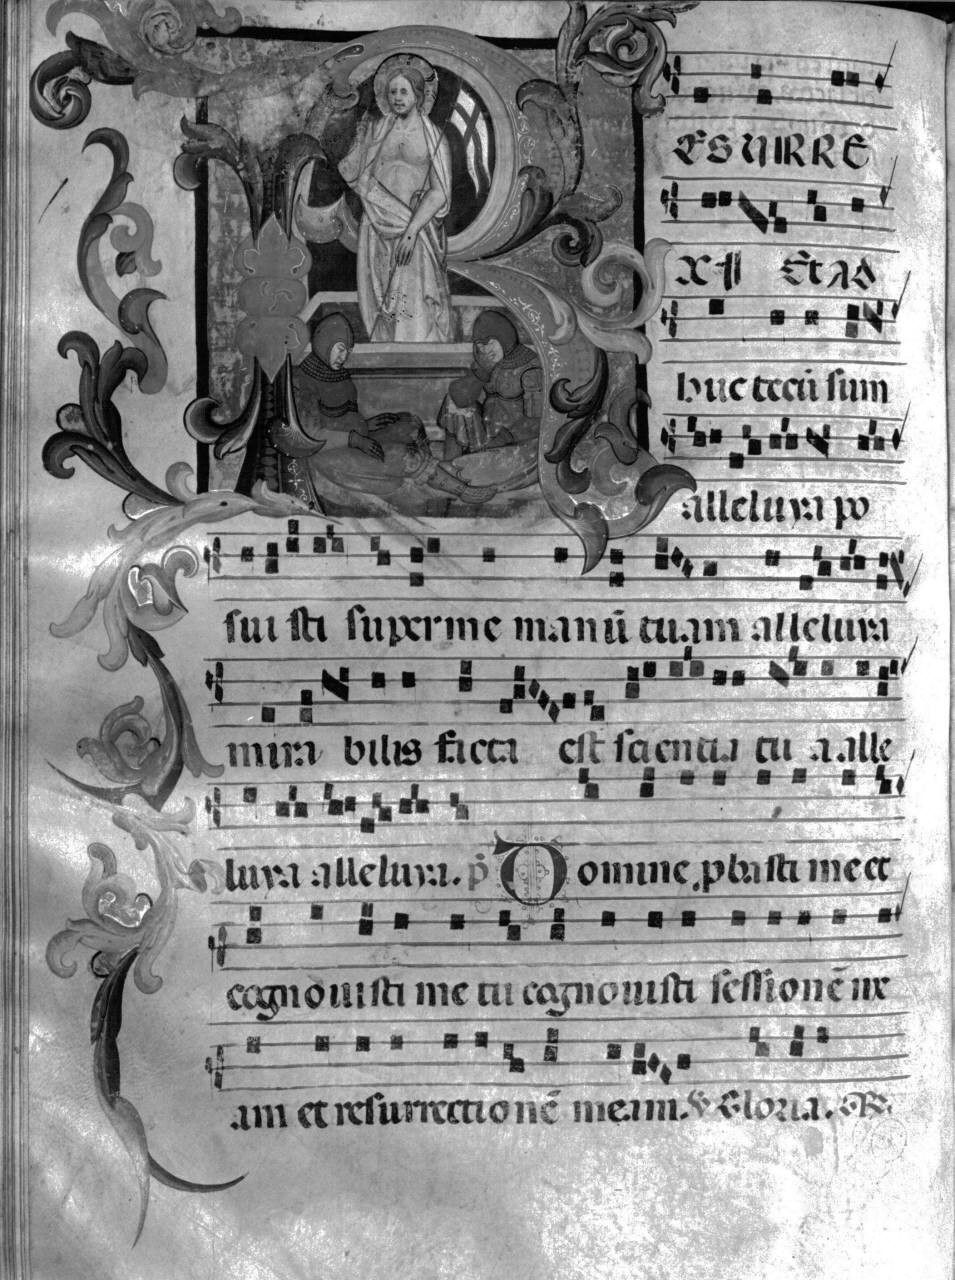 R ESURRE
XI ET AD
huc tecū sum
alleluya po
sui sti super me manū tuam alleluya
mira bilis facta est scientia tu a alle
luya alleluya. p̄s Domine pbasti me et
cognouisti me tu cognouisti sessionē ux
am et resurrectionē meam. V Gloria. R.